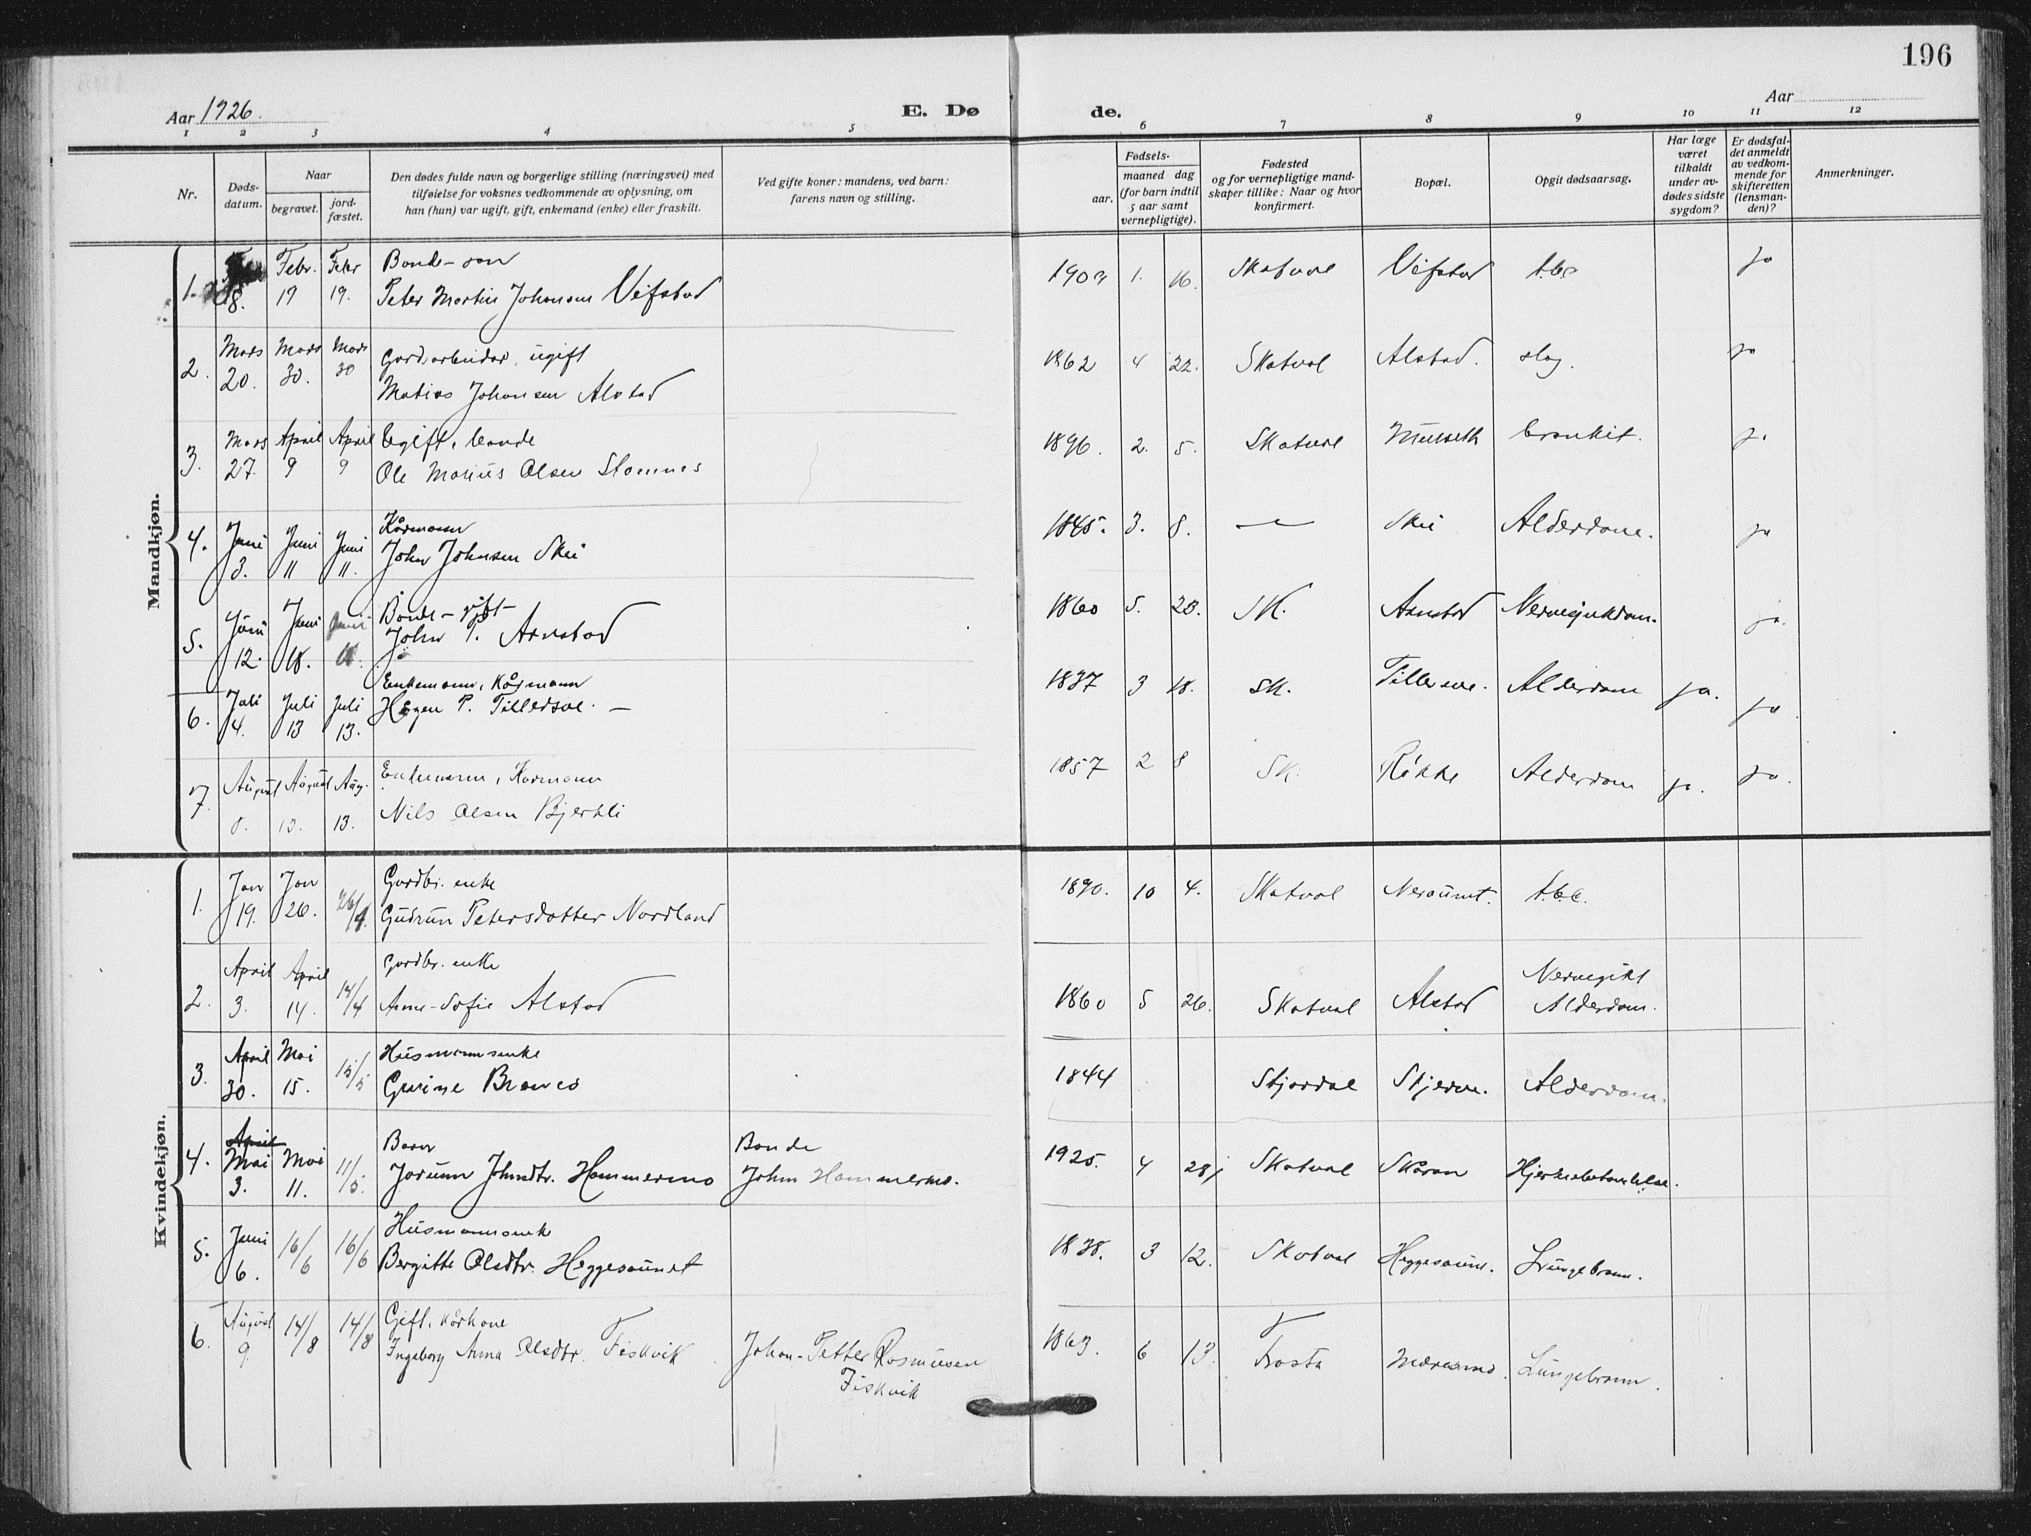 196
Aar 1926.
E. Dø de.
Aar
1 2 3 4 5 6 7 8 9 10 11 12
Nr.
Døds-
datum.
Naar
begravet.
jord-
fæstet.
Den dødes fulde navn og borgerlige stilling (næringsvei) med
tilføielse for voksnes vedkommende av oplysning, om
han (hun) var ugift, gift, enkemand (enke) eller fraskilt.
Ved gifte koner: mandens, ved barn:
farens navn og stilling.
Fødsels-
aar.
maaned dag
(for barn indtil
5 aar samt
vernepligtige).
Fødested
og for vernepligtige mand-
skaper tillike: Naar og hvor
konfirmert.
Bopæl.
Opgit dødsaarsag.
Har læge
været
tilkaldt
under av-
dødes sidste
sygdom?
Er dødsfal-
det anmeldt
av vedkom-
mende for
skifteretten
(lensman-
den)?
Anmerkninger.
Mandkjøn.
Febr. Febr Bonde-søn
1. 8. 19 19. Peter Martin Johansen Vifstad 1909 1. 16. Skatval Vifstad t.b.c ja
Mars Mars Mars Gardsarbeider, ugift
2. 20. 30. 30 Matias Johansen Alstad 1862 4 22. Skatval Alstad. slag. ja
Mars April April Ugift, bonde
3. 27. 9 9 Ole Marius Olsen Stamnes 1896. 2. 5. Skatval bronkit. ja
Juni Juni Juni Kårmann
4. 3. 11 11. John Johnsen Skei 1845. 3. 8. — Skei Alderdom. ja
Juni Juni Juni Bonde - gift -
5. 12. 18. 18. John P. Arnstad 1860 5. 23. Sk. Arnstad Nervesjukdom. ja.
Juli Juli Juli Enkemann, Kårmann
6. 4. 13 13. Hagen P. Tillersve. — 1837 3 18. Sk. Tillersve. Alderdom ja. ja.
August August Aug. Enkemann, Kårmann
7. 8. 13. 13. Nils Olsen Bjerkli 1857 2 8 Sk. Røkke Alderdom ja. ja.
Kvindekjøn.
Jan Jan Gardbr. enke
1. 19. 26. 26/1 Gudrun Petersdatter Nordland 1890. 10 4. Skatval t.b.c.
April April Gardbr. enke
2. 3. 14. 14/4 Anne-Sofie Alstad 1860 5 26. Skatval Alstad Nervegikt
Alderdom.
April Mai Husmannsenke
3. 30. 15. 15/5 Gurine 1844 Stjørdal Alderdom.
April
Mai Mai Barn Bonde
4. 3. 11. 11/5. Jorunn Johndtr. Hammermo John Hammermo. 1925. 4 28 Skatval Skaran Hjernebetændelse.
Juni Husmannsenke
5. 6. 16/6 16/6 Bergitte Olsdtr. Heggesaunet 1838. 3 12. Skatval Heggesaune. Lungebronn.
August Gift, kårkone
6. 9. 14/8 14/8 Ingeborg Anna Olsdtr. Fiskvik. Johan-Petter Rasmusen
Fiskvik
1863. 6 13. Frosta Lungebronn.